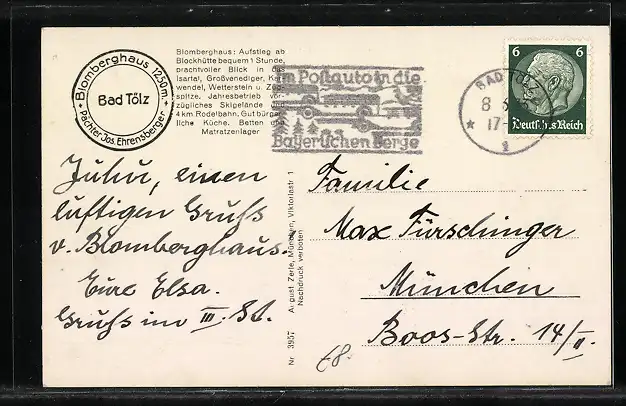 Blomberghaus 1250m
Bad Tölz
Pächter Jos. Ehrensberger
Blomberghaus: Aufstieg ab
Blockhütte bequem 1 Stunde,
prachtvoller Blick in das
Isartal, Großvenediger, Kar-
wendel, Wetterstein u. Zug-
spitze. Jahresbetrieb vor-
zügliches Skigelände und
4 km Rodelbahn. Gut bürger-
liche Küche. Betten und
Matratzenlager
Im Postauto in die
Bayerischen Berge
BAD TÖLZ
8
17-
1
6 6
Deutsches Reich
Juhu, einen
luftigen Gruß
v. Blomberghaus.
Eure Elsa.
Gruß im III. St.
Nr 3957 August Zerle, München, Viktoriastr 1
Nachdruck verboten
Familie
Max Fürschinger
München
Boos-Str. 14/II.
€8.-